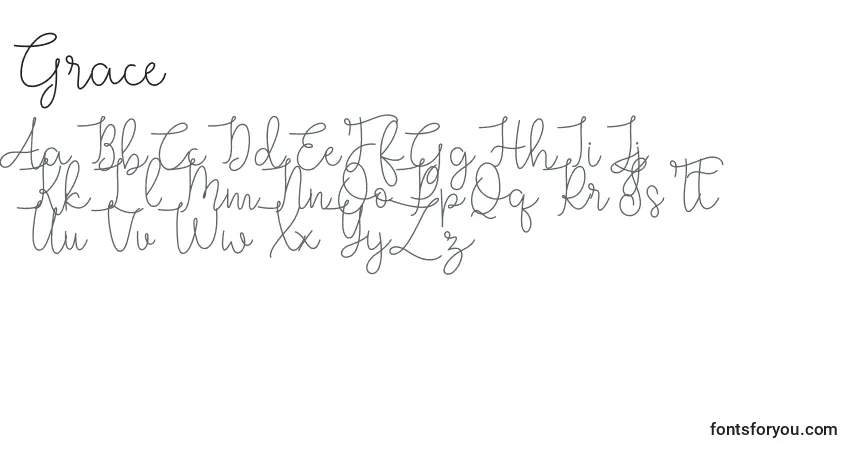 Grace
Aa Bb Cc Dd Ee Ff Gg Hh Ii Jj
Kk Ll Mm Nn Oo Pp Qq Rr Ss Tt
Uu Vv Ww Xx Yy Zz
fontsforyou.com